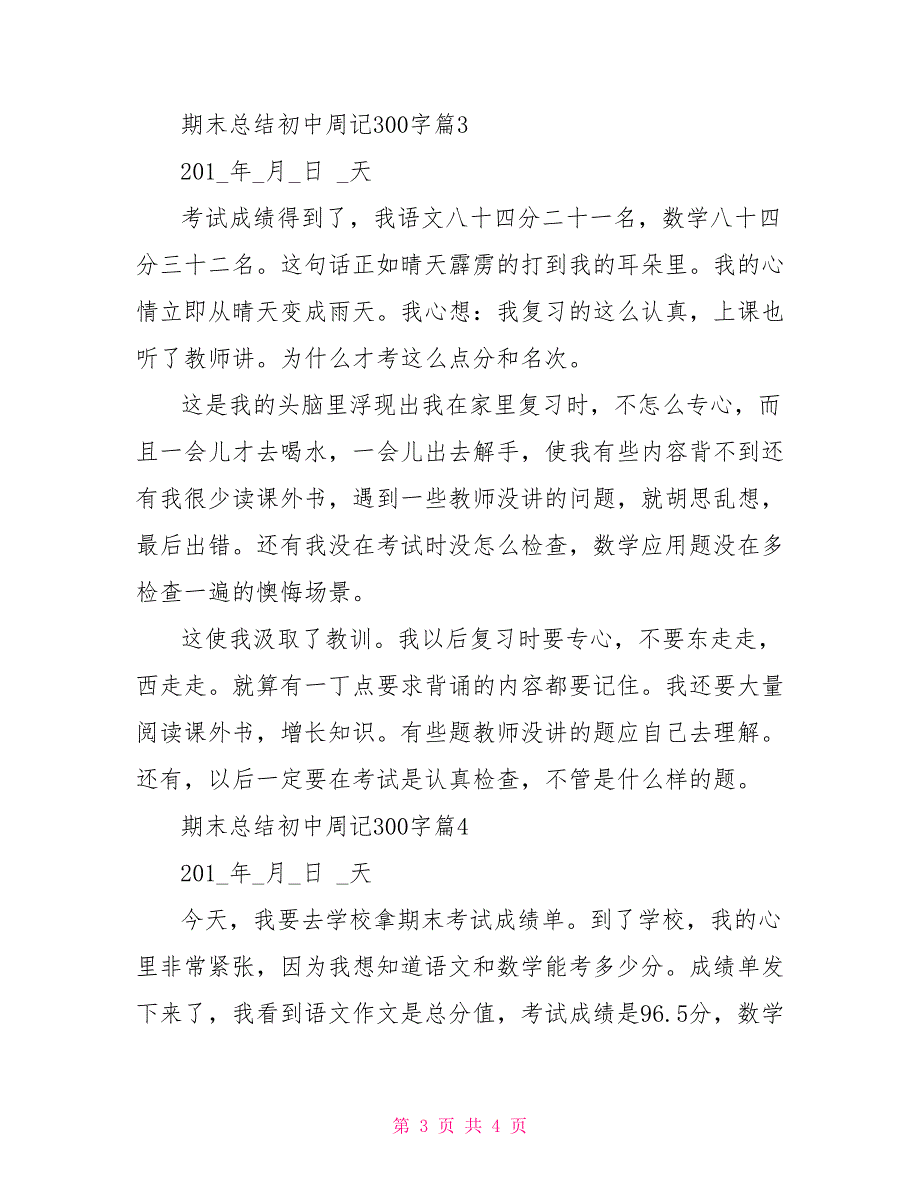 期末总结初中周记300字篇3
201_年_月_日 _天
考试成绩得到了，我语文八十四分二十一名，数学八十四
分三十二名。这句话正如晴天霹雳的打到我的耳朵里。我的心
情立即从晴天变成雨天。我心想：我复习的这么认真，上课也
听了教师讲。为什么才考这么点分和名次。
这是我的头脑里浮现出我在家里复习时，不怎么专心，而
且一会儿才去喝水，一会儿出去解手，使我有些内容背不到还
有我很少读课外书，遇到一些教师没讲的问题，就胡思乱想，
最后出错。还有我没在考试时没怎么检查，数学应用题没在多
检查一遍的懊悔场景。
这使我汲取了教训。我以后复习时要专心，不要东走走，
西走走。就算有一丁点要求背诵的内容都要记住。我还要大量
阅读课外书，增长知识。有些题教师没讲的题应自己去理解。
还有，以后一定要在考试是认真检查，不管是什么样的题。
期末总结初中周记300字篇4
201_年_月_日 _天
今天，我要去学校拿期末考试成绩单。到了学校，我的心
里非常紧张，因为我想知道语文和数学能考多少分。成绩单发
下来了，我看到语文作文是总分值，考试成绩是96.5分，数学
第 3 页 共 4 页